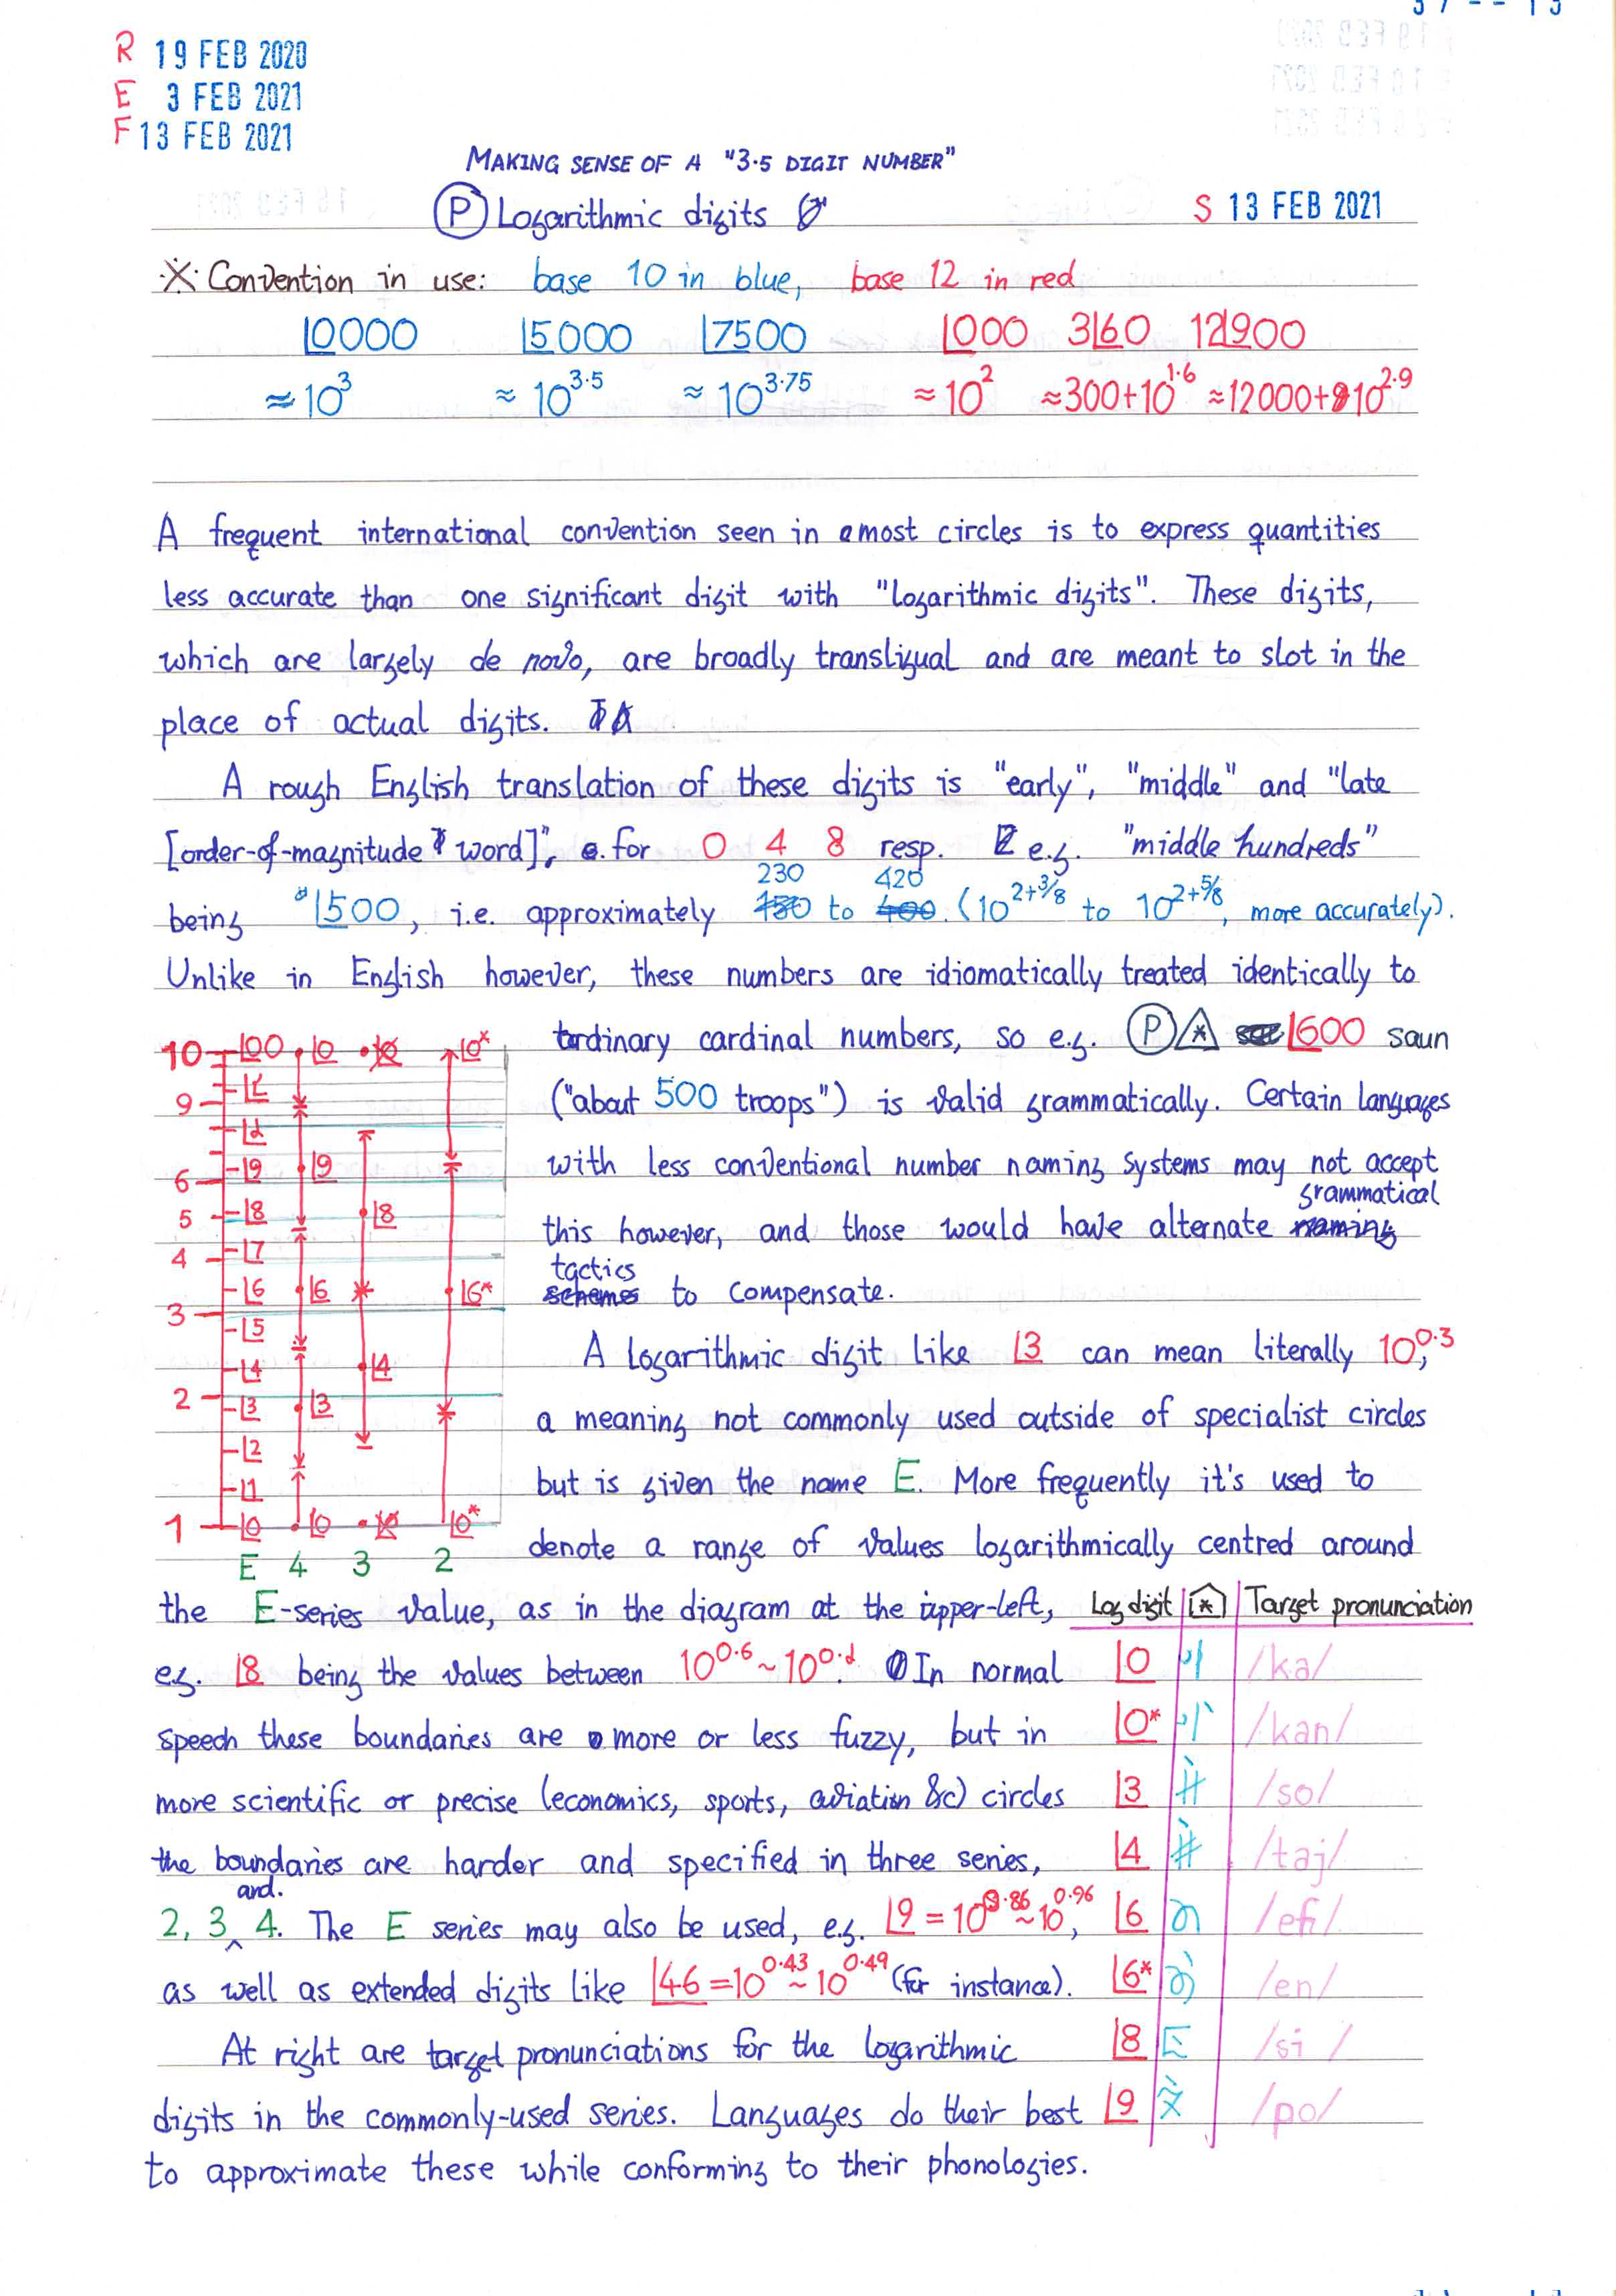 R 19 FEB 2020
E 3 FEB 2021
F 13 FEB 2021
MAKING SENSE OF A "3·5 DIGIT NUMBER"
Ⓟ Logarithmic digits
S 13 FEB 2021
※ Convention in use: base 10 in blue, base 12 in red
|0000 |5000 |7500 |000 3|60 12|900
≈10^3 ≈10^3·5 ≈10^3·75 ≈10^2 ≈300+10^1·6 ≈12000+10^2·9
A frequent international convention seen in most circles is to express quantities
less accurate than one significant digit with "logarithmic digits". These digits,
which are largely de novo, are broadly transligual and are meant to slot in the
place of actual digits.
A rough English translation of these digits is "early", "middle" and "late
[order-of-magnitude word]", for 0 4 8 resp. e.g. "middle hundreds"
being |500, i.e. approximately 230 to 420 (10^2+3/8 to 10^2+5/8, more accurately).
Unlike in English however, these numbers are idiomatically treated identically to
ordinary cardinal numbers, so e.g. Ⓟ |600 saun
("about 500 troops") is valid grammatically. Certain languages
with less conventional number naming systems may not accept
this however, and those would have alternate grammatical
tactics to compensate.
A logarithmic digit like |3 can mean literally 10^0·3,
a meaning not commonly used outside of specialist circles
but is given the name E. More frequently it's used to
denote a range of values logarithmically centred around
10 |00 |0 |0*
9
6 |9 |9
5 |8 |8
4 |7
|6 |6 |6*
3 |5
|4 |4
2 |3 |3
|2
|1
1 |0 |0 |0*
E 4 3 2
the E-series value, as in the diagram at the upper-left,
eg. |8 being the values between 10^0·6 ~ 10^0·. In normal
speech these boundaries are more or less fuzzy, but in
more scientific or precise (economics, sports, aviation &c) circles
the boundaries are harder and specified in three series,
2, 3 and 4. The E series may also be used, e.g. |9 = 10^0·86 ~ 10^0·96,
as well as extended digits like |46 = 10^0·43 ~ 10^0·49 (for instance).
At right are target pronunciations for the logarithmic
digits in the commonly-used series. Languages do their best
to approximate these while conforming to their phonologies.
Log digit [*] Target pronunciation
|0 /ka/
|0* /kan/
|3 /so/
|4 /taj/
|6 /efi/
|6* /en/
|8 /si /
|9 /po/